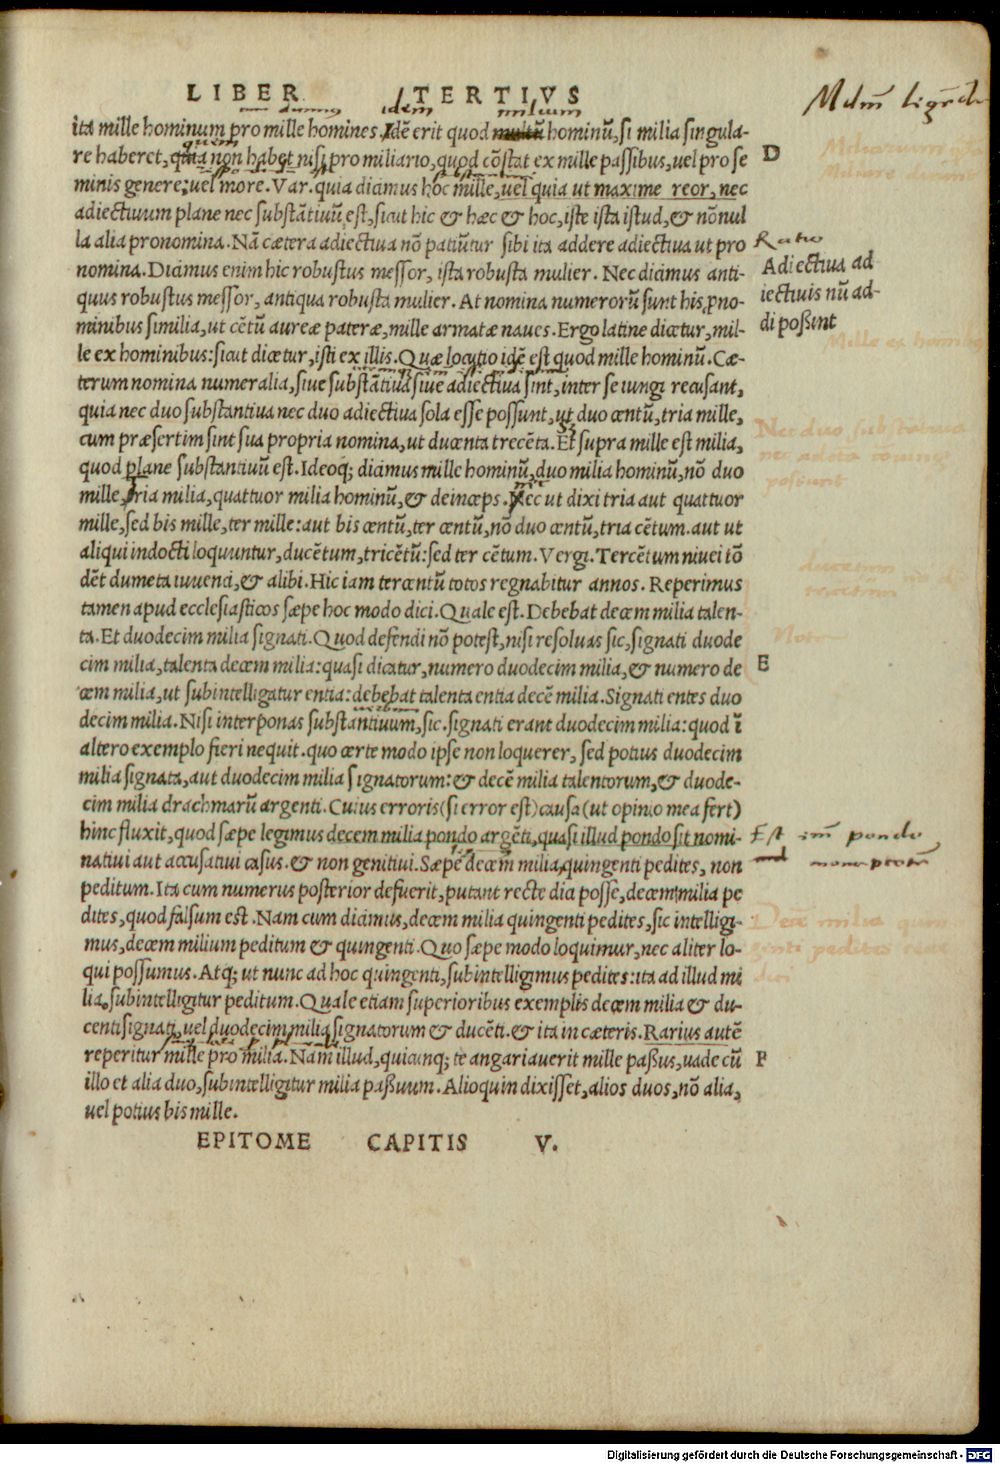 LIBER TERTIVS
ita mille hominum pro mille homines. Idē erit quod multū hominū, si milia singula-
re haberet, quia non habet nisi pro miliario, quod cōstat ex mille passibus, uel pro se
minis genere; uel more. Var. quia dicimus hoc mille, uel quia ut maxime reor, nec
adiectiuum plane nec substātiuū est, sicut hic & hæc & hoc, iste ista istud, & nōnul
la alia pronomina. Nā cætera adiectiua nō patiūtur sibi ita addere adiectiua ut pro
nomina. Dicimus enim hic robustus messor, ista robusta mulier. Nec dicimus anti-
quus robustus messor, antiqua robusta mulier. At nomina numerorū sunt his ꝓno-
minibus similia, ut cētū aureæ pateræ, mille armatæ naues. Ergo latine dicetur, mil-
le ex hominibus: sicut dicetur, isti ex illis. Quæ locutio idē est quod mille hominū. Cæ-
terum nomina numeralia, siue substātiua siue adiectiua sint, inter se iungi recusant,
quia nec duo substantiua nec duo adiectiua sola esse possunt, ut duo centū, tria mille,
cum præsertim sint sua propria nomina, ut ducenta trecēta. Et supra mille est milia,
quod plane substantiuū est. Ideoq; dicimus mille hominū, duo milia hominū, nō duo
mille, tria milia, quattuor milia hominū, & deinceps. Nec ut dixi tria aut quattuor
mille, sed bis mille, ter mille: aut bis centū, ter centū, nō duo centū, tria cētum. aut ut
aliqui indocti loquuntur, ducētum, tricētū: sed ter cētum. Vergi. Tercētum niuei tō
dēt dumeta iuuenci, & alibi. Hic iam tercentū totos regnabitur annos. Reperimus
tamen apud ecclesiasticos sæpe hoc modo dici. Quale est. Debebat decem milia talen-
ta. Et duodecim milia signati. Quod defendi nō potest, nisi resoluas sic, signati duode
cim milia, talenta decem milia: quasi dicatur, numero duodecim milia, & numero de
cem milia, ut subintelligatur entia: debebat talenta entia decē milia. Signati entes duo
decim milia. Nisi interponas substantiuum, sic. signati erant duodecim milia: quod ī
altero exemplo fieri nequit. quo certe modo ipse non loquerer, sed potius duodecim
milia signata, aut duodecim milia signatorum: & decē milia talentorum, & duode-
cim milia drachmarū argenti. Cuius erroris (si error est) causa (ut opinio mea fert)
hinc fluxit, quod sæpe legimus decem milia pondo argēti, quasi illud pondo sit nomi-
natiui aut accusatiui casus. & non genitiui. Sæpe decem milia, quingenti pedites, non
peditum. Ita cum numerus posterior defuerit, putant recte dici posse, decem milia pe
dites, quod falsum est. Nam cum dicimus, decem milia quingenti pedites, sic intelligi-
mus, decem milium peditum & quingenti. Quo sæpe modo loquimur, nec aliter lo-
qui possumus. Atq; ut nunc ad hoc quingenti, subintelligimus pedites: ita ad illud mi
lia, subintelligitur peditum. Quale etiam superioribus exemplis decem milia & du-
centi signati, uel duodecim milia signatorum & ducēti. & ita in cæteris. Rarius autē
reperitur mille pro milia. Nam illud, quicunq; te angariauerit mille passus, uade cū
illo et alia duo, subintelligitur milia passuum. Alioquin dixisset, alios duos, nō alia,
uel potius bis mille.
EPITOME CAPITIS V.
idem
milium
quem
D
Ratio
Adiectiua ad
iectiuis nū ad-
di possunt
Mille ex hominibus
Nec duo substātiua
possunt
ducētum
Nota
E
Est pondo
Decē milia quin
genti pedites
dici
F
Digitalisierung gefördert durch die Deutsche Forschungsgemeinschaft - DFG